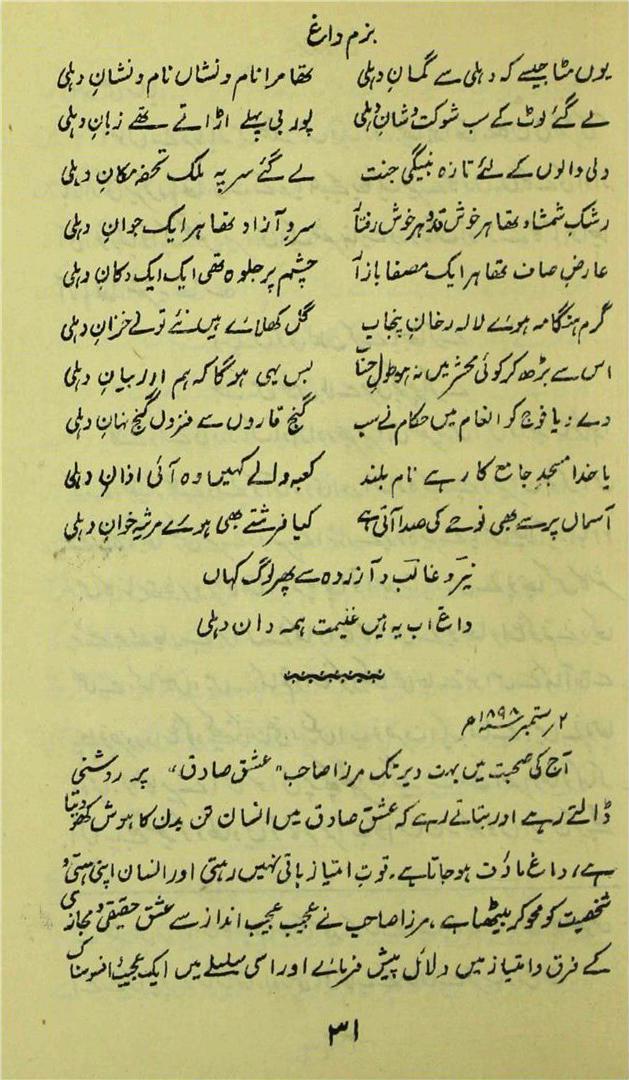 بزم داغ
یوں مٹا جیسے کہ دہلی سے گمانِ دہلی تھا مرا نام و نشاں نام و نشانِ دہلی
لے گئے لوٹ کے سب شوکت و شانِ دہلی پوربی پہلے اڑاتے تھے زبانِ دہلی
دلی والوں کے لئے تازہ بنیگی جنت لے گئے سر پہ ملک تحفہ مکانِ دہلی
رشکِ شمشاد تھا ہر خوش قد و ہر خوش رفتار سروِ آزاد تھا ہر ایک جوانِ دہلی
عارضِ صاف تھا ہر ایک مصفا بازار چشم پر جلوہ تھی ایک ایک دکانِ دہلی
گرم ہنگامہ ہوئے لالہ رخانِ پنجاب گل کھلائے ہیں نئے تونے خزانِ دہلی
اس سے بڑھ کر کوئی محشر میں نہ ہو طولِ حساب بس یہی ہوگا کہ ہم اور بیانِ دہلی
دے دیا فوج کو انعام میں حکام نے سب گنجِ قاروں سے فزوں گنجِ نہانِ دہلی
یا خدا مسجدِ جامع کا رہے نام بلند کعبہ والے کہیں وہ آئی اذانِ دہلی
آسماں پر سے بھی نوحے کی صدا آتی ہے کیا فرشتے بھی ہوئے مرثیہ خوانِ دہلی
نیر و غالب و آزردہ سے پھر لوگ کہاں
داغ اب یہ ہیں غنیمت ہمہ دانِ دہلی
۲ ستمبر ۱۸۹۸ء
آج کی صحبت میں بہت دیر تک مرزا صاحب "عشق صادق" پر روشنی
ڈالتے رہے اور بتاتے رہے کہ عشق صادق میں انسان تن بدن کا ہوش کھو دیتا
ہے، داغ ماؤف ہو جاتا ہے۔ قوتِ امتیاز باقی نہیں رہتی اور انسان اپنی ہستی و
شخصیت کو محو کر بیٹھتا ہے، مرزا صاحب نے عجیب عجیب انداز سے عشق حقیقی و مجازی
کے فرق و امتیاز میں دلائل پیش فرمائے اور اسی سلسلے میں ایک عجیب افسوسناک
۳۱